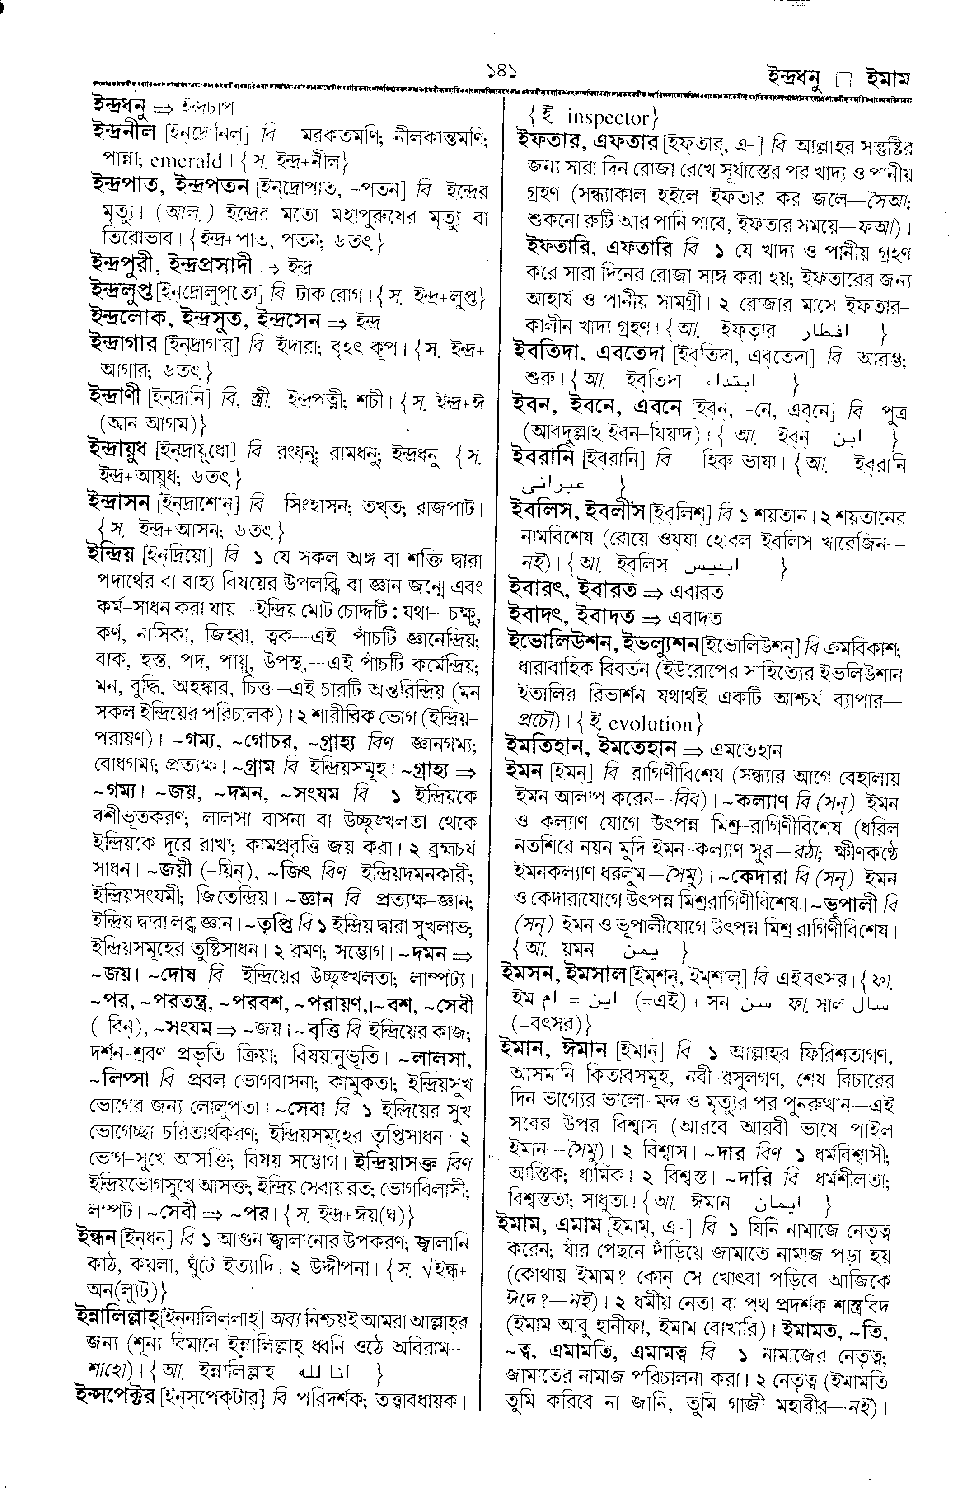 ১৪১
ইন্দ্রধনু □ ইমাম
ইন্দ্রধনু ⇒ ইন্দ্রচাপ
ইন্দ্রনীল [ইন্‌দ্রোনিল্‌] বি মরকতমণি; নীলকান্তমণি;
পান্না; emerald। {স. ইন্দ্র+নীল}
ইন্দ্রপাত, ইন্দ্রপতন [ইন্‌দ্রোপাত্‌, -পতন্‌] বি ইন্দ্রের
মৃত্যু। (আল.) ইন্দ্রের মতো মহাপুরুষের মৃত্যু বা
তিরোভাব। {ইন্দ্র+পাত, পতন; ৬তৎ}
ইন্দ্রপুরী, ইন্দ্রপ্রসাদী ⇒ ইন্দ্র
ইন্দ্রলুপ্ত [ইন্‌দ্রোলুপ্‌তো] বি টাক রোগ। {স. ইন্দ্র+লুপ্ত}
ইন্দ্রলোক, ইন্দ্রসুত, ইন্দ্রসেন ⇒ ইন্দ্র
ইন্দ্রাগার [ইন্‌দ্রাগার্‌] বি ইদারা; বৃহৎ কূপ। {স. ইন্দ্র+
আগার; ৬তৎ}
ইন্দ্রাণী [ইন্‌দ্রানি] বি. স্ত্রী. ইন্দ্রপত্নী; শচী। {স. ইন্দ্র+ঈ
(আন আগম)}
ইন্দ্রায়ুধ [ইন্‌দ্রায়ুধো] বি রংধনু; রামধনু; ইন্দ্রধনু {স.
ইন্দ্র+আয়ুধ; ৬তৎ}
ইন্দ্রাসন [ইন্‌দ্রাশোন্‌] বি সিংহাসন; তখ্‌ত; রাজপাট।
{স. ইন্দ্র+আসন; ৬তৎ}
ইন্দ্রিয় [ইন্‌দ্রিয়ো] বি ১ যে সকল অঙ্গ বা শক্তি দ্বারা
পদার্থের বা বাহ্য বিষয়ের উপলব্ধি বা জ্ঞান জন্মে এবং
কর্ম-সাধন করা যায় ইন্দ্রিয় মোট চোদ্দটি : যথা- চক্ষু,
কর্ণ, নাসিকা, জিহ্বা, ত্বক—এই পাঁচটি জ্ঞানেন্দ্রিয়;
বাক, হস্ত, পদ, পায়ু, উপস্থ,—এই পাঁচটি কর্মেন্দ্রিয়;
মন, বুদ্ধি, অহঙ্কার, চিত্ত—এই চারটি অন্তরিন্দ্রিয় (মন
সকল ইন্দ্রিয়ের পরিচালক)। ২ শারীরিক ভোগ (ইন্দ্রিয়–
পরায়ণ)। ~গম্য, ~গোচর, ~গ্রাহ্য বিণ জ্ঞানগম্য;
বোধগম্য; প্রত্যক্ষ। ~গ্রাম বি ইন্দ্রিয়সমূহ। ~গ্রাহ্য ⇒
~গম্য। ~জয়, ~দমন, ~সংযম বি ১ ইন্দ্রিয়কে
বশীভূতকরণ; লালসা বাসনা বা উচ্ছৃঙ্খলতা থেকে
ইন্দ্রিয়কে দূরে রাখা; কামপ্রবৃত্তি জয় করা। ২ ব্রহ্মচর্য
সাধন। ~জয়ী (–য়িন্‌), ~জিৎ বিণ ইন্দ্রিয়দমনকারী;
ইন্দ্রিয়সংযমী; জিতেন্দ্রিয়। ~জ্ঞান বি প্রত্যক্ষ–জ্ঞান;
ইন্দ্রিয় দ্বারা লব্ধ জ্ঞান। ~তৃপ্তি বি ১ ইন্দ্রিয় দ্বারা সুখলাভ;
ইন্দ্রিয়সমূহের তুষ্টিসাধন। ২ রমণ; সম্ভোগ। ~দমন ⇒
~জয়। ~দোষ বি ইন্দ্রিয়ের উচ্ছৃঙ্খলতা; লাম্পট্য।
~পর, ~পরতন্ত্র, ~পরবশ, ~পরায়ণ,।~বশ, ~সেবী
(বিন্‌), ~সংযম ⇒ ~জয়। ~বৃত্তি বি ইন্দ্রিয়ের কাজ;
দর্শন-শ্রবণ প্রভৃতি ক্রিয়া; বিষয়ানুভূতি। ~লালসা,
~লিপ্সা বি প্রবল ভোগবাসনা; কামুকতা; ইন্দ্রিয়সুখ
ভোগের জন্য লোলুপতা। ~সেবা বি ১ ইন্দ্রিয়ের সুখ
ভোগেচ্ছা চরিতার্থকরণ; ইন্দ্রিয়সমূহের তৃপ্তিসাধন। ২
ভোগ–সুখে আসক্তি; বিষয় সম্ভোগ। ইন্দ্রিয়াসক্ত বিণ
ইন্দ্রিয়ভোগসুখে আসক্ত; ইন্দ্রিয় সেবায় রত; ভোগবিলাসী;
লম্পট। ~সেবী ⇒ ~পর। {স. ইন্দ্র+ঈয়(ঘ)}
ইন্ধন [ইন্‌ধন্‌] বি ১ আগুন জ্বালানোর উপকরণ; জ্বালানি
কাঠ, কয়লা, ঘুঁটে ইত্যাদি। ২ উদ্দীপনা। {স. √ইন্ধ+
অন(ল্যুট)}
ইন্নালিল্লাহ [ইন্‌নালিল্‌লাহ্‌] অব্য নিশ্চয়ই আমরা আল্লাহর
জন্য (শূন্য বিমানে ইন্নালিল্লাহ ধ্বনি ওঠে অবিরাম–
শাহো)। {আ. ইন্নালিল্লাহ انا لله }
ইন্সপেক্টর [ইন্‌স্‌পেক্‌টার্‌] বি পরিদর্শক; তত্ত্বাবধায়ক।
{ই inspector}
ইফতার, এফতার [ইফ্‌তার্‌, এ-] বি আল্লাহর সন্তুষ্টির
জন্য সারা দিন রোজা রেখে সূর্যাস্তের পর খাদ্য ও পানীয়
গ্রহণ (সন্ধ্যাকাল হইলে ইফতার কর জলে—সৈআ;
শুকনো রুটি আর পানি পাবে, ইফতার সময়ে—ফআ)।
ইফতারি, এফতারি বি ১ যে খাদ্য ও পানীয় গ্রহণ
করে সারা দিনের রোজা সাঙ্গ করা হয়; ইফতারের জন্য
আহার্য ও পানীয় সামগ্রী। ২ রোজার মাসে ইফতার–
কালীন খাদ্য গ্রহণ। {আ. ইফ্‌ত়ার افطار }
ইবতিদা, এবতেদা [ইব্‌তিদা, এব্‌তেদা] বি আরম্ভ;
শুরু। {আ. ইবতিদা ابتداء }
ইবন, ইবনে, এবনে [ইবন্‌, -নে, এব্‌নে] বি পুত্র
(আবদুল্লাহ ইবন–যিয়াদ)। {আ. ইবন্‌ ابن }
ইবরানি [ইবরানি] বি হিব্রু ভাষা। {আ. ইবরানি
عبرانى }
ইবলিস, ইবলীস [ইবলিশ্‌] বি ১ শয়তান। ২ শয়তানের
নামবিশেষ (রোয়ে ওয্‌যা হোবল ইবলিস খারেজিন–
নই)। {আ. ইব্‌লিস ابليس }
ইবারৎ, ইবারত ⇒ এবারত
ইবাদৎ, ইবাদত ⇒ এবাদত
ইভোলিউশন, ইভল্যুশন [ইভোলিউশন্‌] বি ক্রমবিকাশ;
ধারাবাহিক বিবর্তন (ইউরোপের সাহিত্যের ইভলিউশান
ইতালির রিভার্শন যথার্থই একটি আশ্চর্য ব্যাপার—
প্রচৌ)। {ই evolution}
ইমতিহান, ইমতেহান ⇒ এমতেহান
ইমন [ইমন্‌] বি রাগিণীবিশেষ (সন্ধ্যার আগে বেহালায়
ইমন আলাপ করেন– বিব)। ~কল্যাণ বি (সন্‌) ইমন
ও কল্যাণ যোগে উৎপন্ন মিশ্র–রাগিণীবিশেষ (ধরিল
নতশিরে নয়ন মুদি ইমন–কল্যাণ সুর—রঠা; ক্ষীণকণ্ঠে
ইমনকল্যাণ ধরলুম—সৈমু)। ~কেদারা বি (সন্‌) ইমন
ও কেদারাযোগে উৎপন্ন মিশ্ররাগিণীবিশেষ। ~ভূপালী বি
(সন্‌) ইমন ও ভূপালীযোগে উৎপন্ন মিশ্র রাগিণীবিশেষ।
{আ. য়মন يمن }
ইমসন, ইমসাল [ইম্‌শন্‌, ইম্‌শাল্‌] বি এইবৎসর। {ফা.
ইম ام = اين (=এই)। সন سن ফা. সাল سال
(–বৎসর)}
ইমান, ঈমান [ইমান্‌] বি ১ আল্লাহর ফিরিশতাগণ,
আসমানি কিতাবসমূহ, নবী রসুলগণ, শেষ বিচারের
দিন ভাগ্যের ভালো-মন্দ ও মৃত্যুর পর পুনরুত্থান—এই
সবের উপর বিশ্বাস (আরবে আরবী ভাষে পাইল
ইমান–সৈমু)। ২ বিশ্বাস। ~দার বিণ ১ ধর্মবিশ্বাসী;
আস্তিক; ধার্মিক। ২ বিশ্বস্ত। ~দারি বি ধর্মশীলতা;
বিশ্বস্ততা; সাধুতা। {আ. ঈমান ايمان }
ইমাম, এমাম [ইমাম্‌, এ-] বি ১ যিনি নামাজে নেতৃত্ব
করেন; যাঁর পেছনে দাঁড়িয়ে জামাতে নামাজ পড়া হয়
(কোথায় ইমাম? কোন্‌ সে খোৎবা পড়িবে আজিকে
ঈদে?—নই)। ২ ধর্মীয় নেতা বা পথ প্রদর্শক শাস্ত্রবিদ
(ইমাম আবু হানীফা, ইমাম বোখারি)। ইমামত, ~তি,
~ত্ব, এমামতি, এমামত্ব বি ১ নামাজের নেতৃত্ব;
জামাতের নামাজ পরিচালনা করা। ২ নেতৃত্ব (ইমামতি
তুমি করিবে না জানি, তুমি গাজী মহাবীর—নই)।